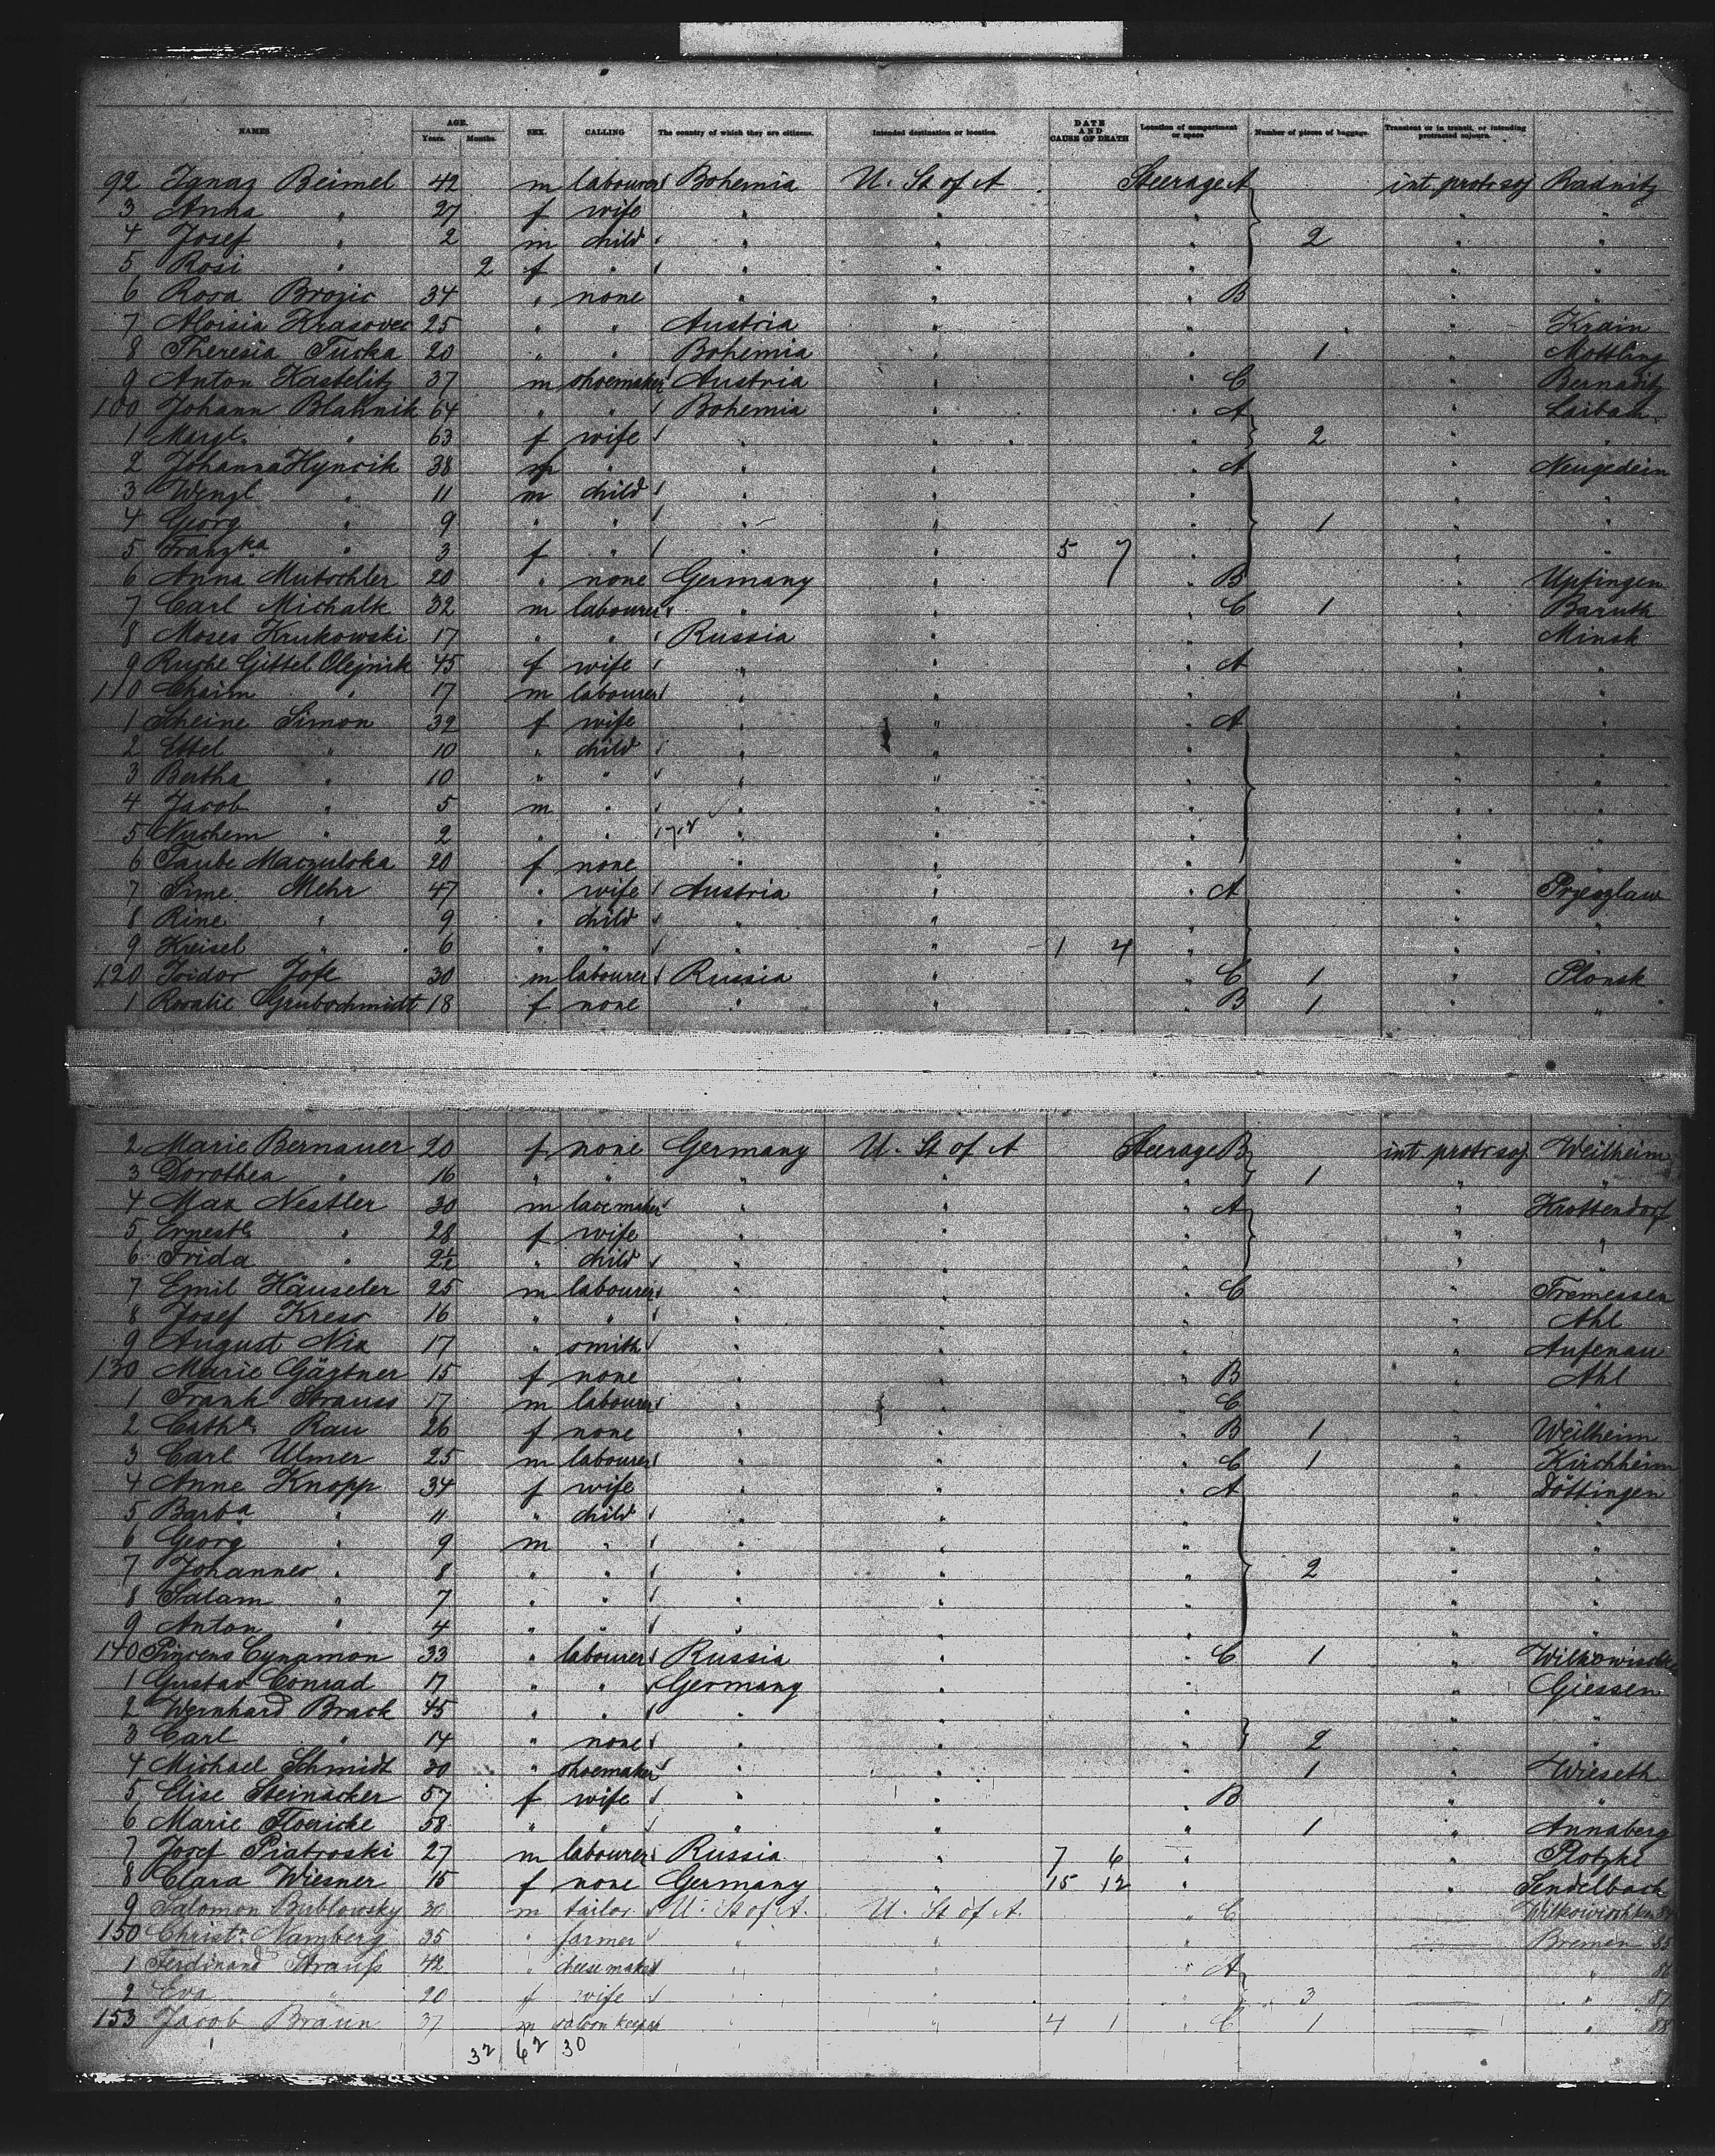 NAMES AGE. Years. Months. SEX. CALLING The country of which they are citizens. Intended destination or location. DATE AND CAUSE OF DEATH Location of compartment or space Number of pieces of baggage. Transient or in transit, or intending protracted sojourn.
92 Ignaz Beimel 42 m labourer Bohemia U. St of A Steerage A int protr soj Radnitz
3 Anna " 27 f wife " " " " "
4 Josef " 2 m child " " " 2 " "
5 Rosi " 2 f " " " " " "
6 Rosa Brozic 34 " none " " " B " "
7 Aloisia Krasovec 25 " " Austria " " " Krain
8 Theresia Turka 20 " " Bohemia " " 1 " Mottling
9 Anton Kastelitz 37 m shoemaker Austria " " C " Bernaditz
100 Johann Blahnik 64 " " Bohemia " " A " Laibach
1 Margt. " 63 f wife " " " 2 " "
2 Johanna Hyncik 38 " " " " A " Neugedein
3 Wenzl " 11 m child " " " " "
4 Georg " 9 " " " " " 1 " "
5 Franzka " 3 f " " " 5 7 " " "
6 Anna Mutschler 20 " none Germany " " B " Upfingen
7 Carl Michalk 32 m labourer " " " C 1 " Baruth
8 Moses Krukowski 17 " " Russia " " " Minsk
9 Ruche Gittel Olejnik 45 f wife " " " A " "
110 Chaim " 17 m labourer " " " " "
1 Scheine Simon 32 f wife " " " A " "
2 Ettel " 10 " child " " " " "
3 Bertha " 10 " " " " " " "
4 Jacob " 5 m " " " " " "
5 Nuchem " 2 " " " " " " "
6 Taube Maczulska 20 f none " " " " "
7 Sime Mehr 47 " wife Austria " " A " Przeszlaw
8 Rine " 9 " child " " " " "
9 Kreisel " 6 " " " " 1 4 " " "
120 Isidor Jofe 30 m labourer Russia " " C 1 " Plonsk
1 Rosalie Grubschmidt 18 f none " " " B 1 " "
2 Marie Bernauer 20 f none Germany U. St of A Steerage B int protr soj Weilheim
3 Dorothea " 16 " " " " " 1 " "
4 Max Nestler 30 m lacemaker " " " A " Krottendorf
5 Ernestne " 28 f wife " " " " "
6 Frida " 2½ " child " " " " "
7 Emil Häuseler 25 m labourer " " " C " Tremessen
8 Josef Kress 16 " " " " " " Ahl
9 August Nix 17 " smith " " " " Aufenau
130 Marie Gärtner 15 f none " " " B " Ahl
1 Frank Strauss 17 m labourer " " " C " "
2 Cathe Rau 26 f none " " " B 1 " Weilheim
3 Carl Ulmer 25 m labourer " " " C 1 " Kirchheim
4 Anne Knopp 34 f wife " " " A " Döttingen
5 Barba " 11 " child " " " " "
6 Georg " 9 m " " " " " "
7 Johannes " 8 " " " " " 2 " "
8 Salam " 7 " " " " " " "
9 Anton " 4 " " " " " " "
140 Cynamon 33 " labourer Russia " " C 1 " Wilkowischk
1 Gustav Conrad 17 " " Germany " " " Giessen
2 Wernhard Brack 45 " " " " " " "
3 Carl " 14 " none " " " 2 " "
4 Michael Schmidt 30 " shoemaker " " " 1 " Wieseth
5 Elise Steinäcker 57 f wife " " " B " "
6 Marie Floericke 58 " " " " " 1 " Annaberg
7 Josef Piatroski 27 m labourer Russia " 7 6 " " Plotzke
8 Clara Wiesner 15 f none Germany " 15 12 " " Sendelbach
9 Salomon Bublowsky 30 m tailor U. St of A. U. St of A. " C Wilkowischken 84
150 Christ. Namberg 35 " farmer " " " Bremen 85
1 Ferdinand Strauss 42 " cheesemaker " " " A " 86
2 Eva " 20 f wife " " " 3 " 87
153 Jacob Braun 37 m saloon keeper " " 4 1 " C 1 " 88
32 62 30